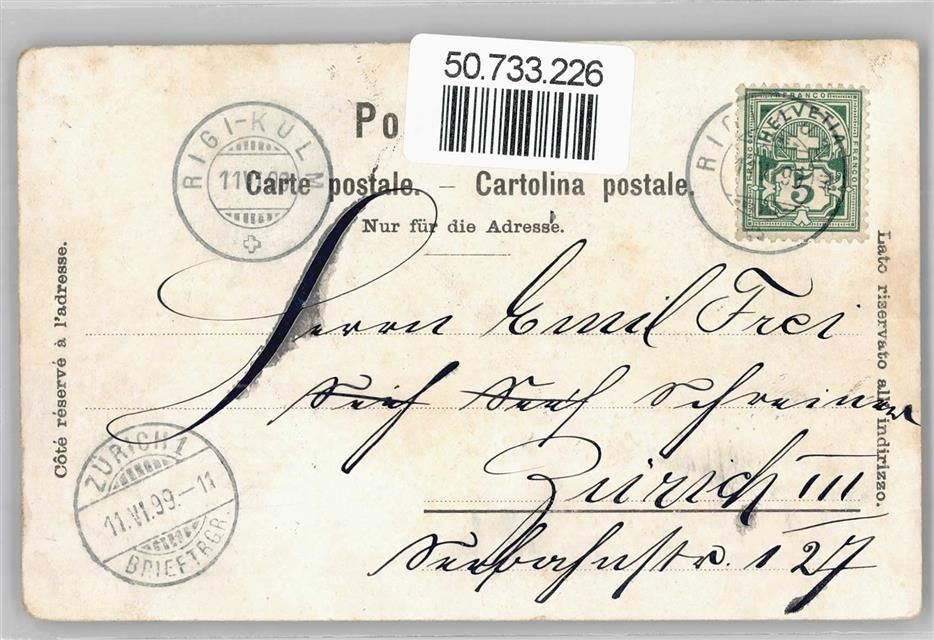 50.733.226
Po
RIGI-KULM
11.VI.99
Carte postale. – Cartolina postale.
Nur für die Adresse.
FRANCO
HELVETIA
FRANCO
5
RIG
Côté réservé à l'adresse.
Lato riservato all'indirizzo.
Herrn Emil Frei
Schreiner
Zürich III
Seebahnstr. 127
ZÜRICH 1
11.VI.99.–11
BRIEFTRGR.